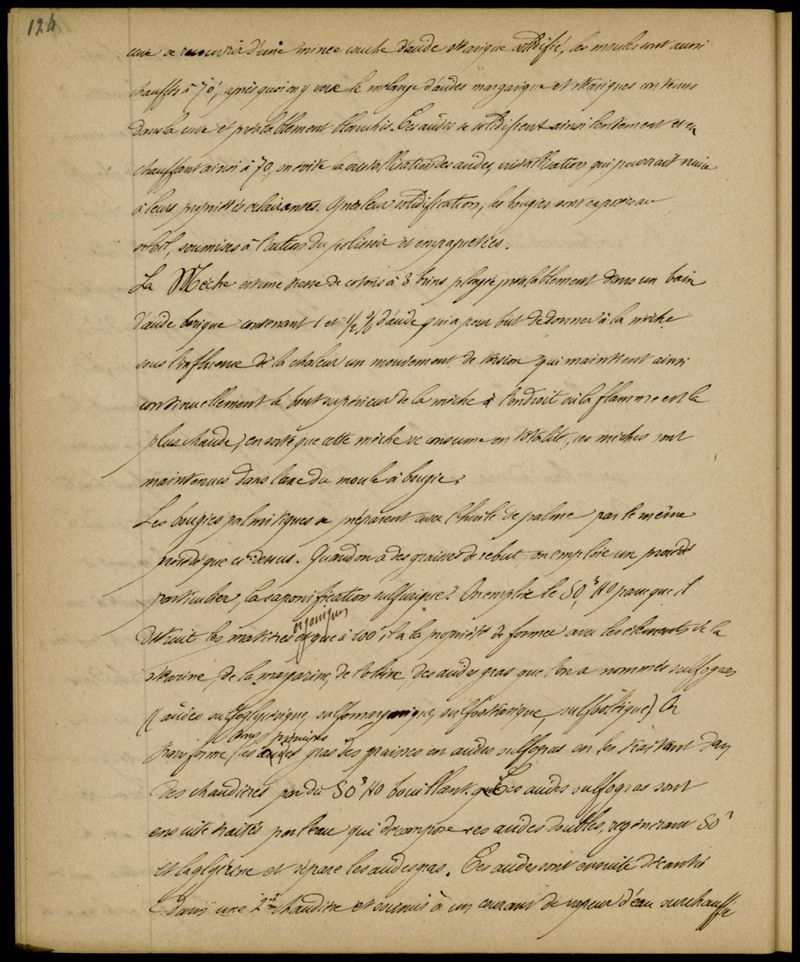 124
cuve se recouvrir d'une mince couche d'acide stéarique solidifié, les moules sont aussi
chauffés à 70°, après quoi on y verse le mélange d'acides margarique et stéariques contenus
dans la cuve et préalablement blanchis. Ces acides se solidifient ainsi lentement et en
chauffant ainsi à 70, on évite la cristallisation des acides, cristallisation qui pourrait nuire
à leurs propriétés éclairantes. Après leur solidification, les bougies sont exposées au
soleil, soumises à l'action du polissoir et empaquetées.
La Mèche est une tresse de coton à 3 brins plongée préalablement dans un bain
d'acide borique contenant 1 et 1/2 % d'acide qui a pour but de donner à la mèche
sous l'influence de la chaleur un mouvement de torsion qui maintient ainsi
continuellement le bout supérieur de la mèche à l'endroit où la flamme est la
plus chaude, en sorte que cette mèche se consume en totalité, ces mèches sont
maintenues dans l'axe du moule à bougie.
Les bougies palmitiques se préparent avec l'huile de palme par le même
procédé que ci-dessus. Quand on a des graisses de rebut on emploie un procédé
particulier, la saponification sulfurique. On emploie le SO³HO parce que il
détruit les matières organiques et que à 200° il a la propriété de former avec les éléments de la
stéarine, de la margarine, de l'oléine, des acides gras que l'on a nommés sulfogras
(acides sulfoglycérique, sulfomargarique, sulfostéarique, sulfoléique). On
transforme les acides gras des graisses en acides sulfogras en les traitant dans
des chaudières par du SO³HO bouillant. Ces acides sulfogras sont
ensuite traités par l'eau qui décompose ces acides doubles, régénérant SO³
et la glycérine et sépare les acides gras. Ces acides sont ensuite décantés
dans une 2e chaudière et soumis à un courant de vapeur d'eau surchauffée